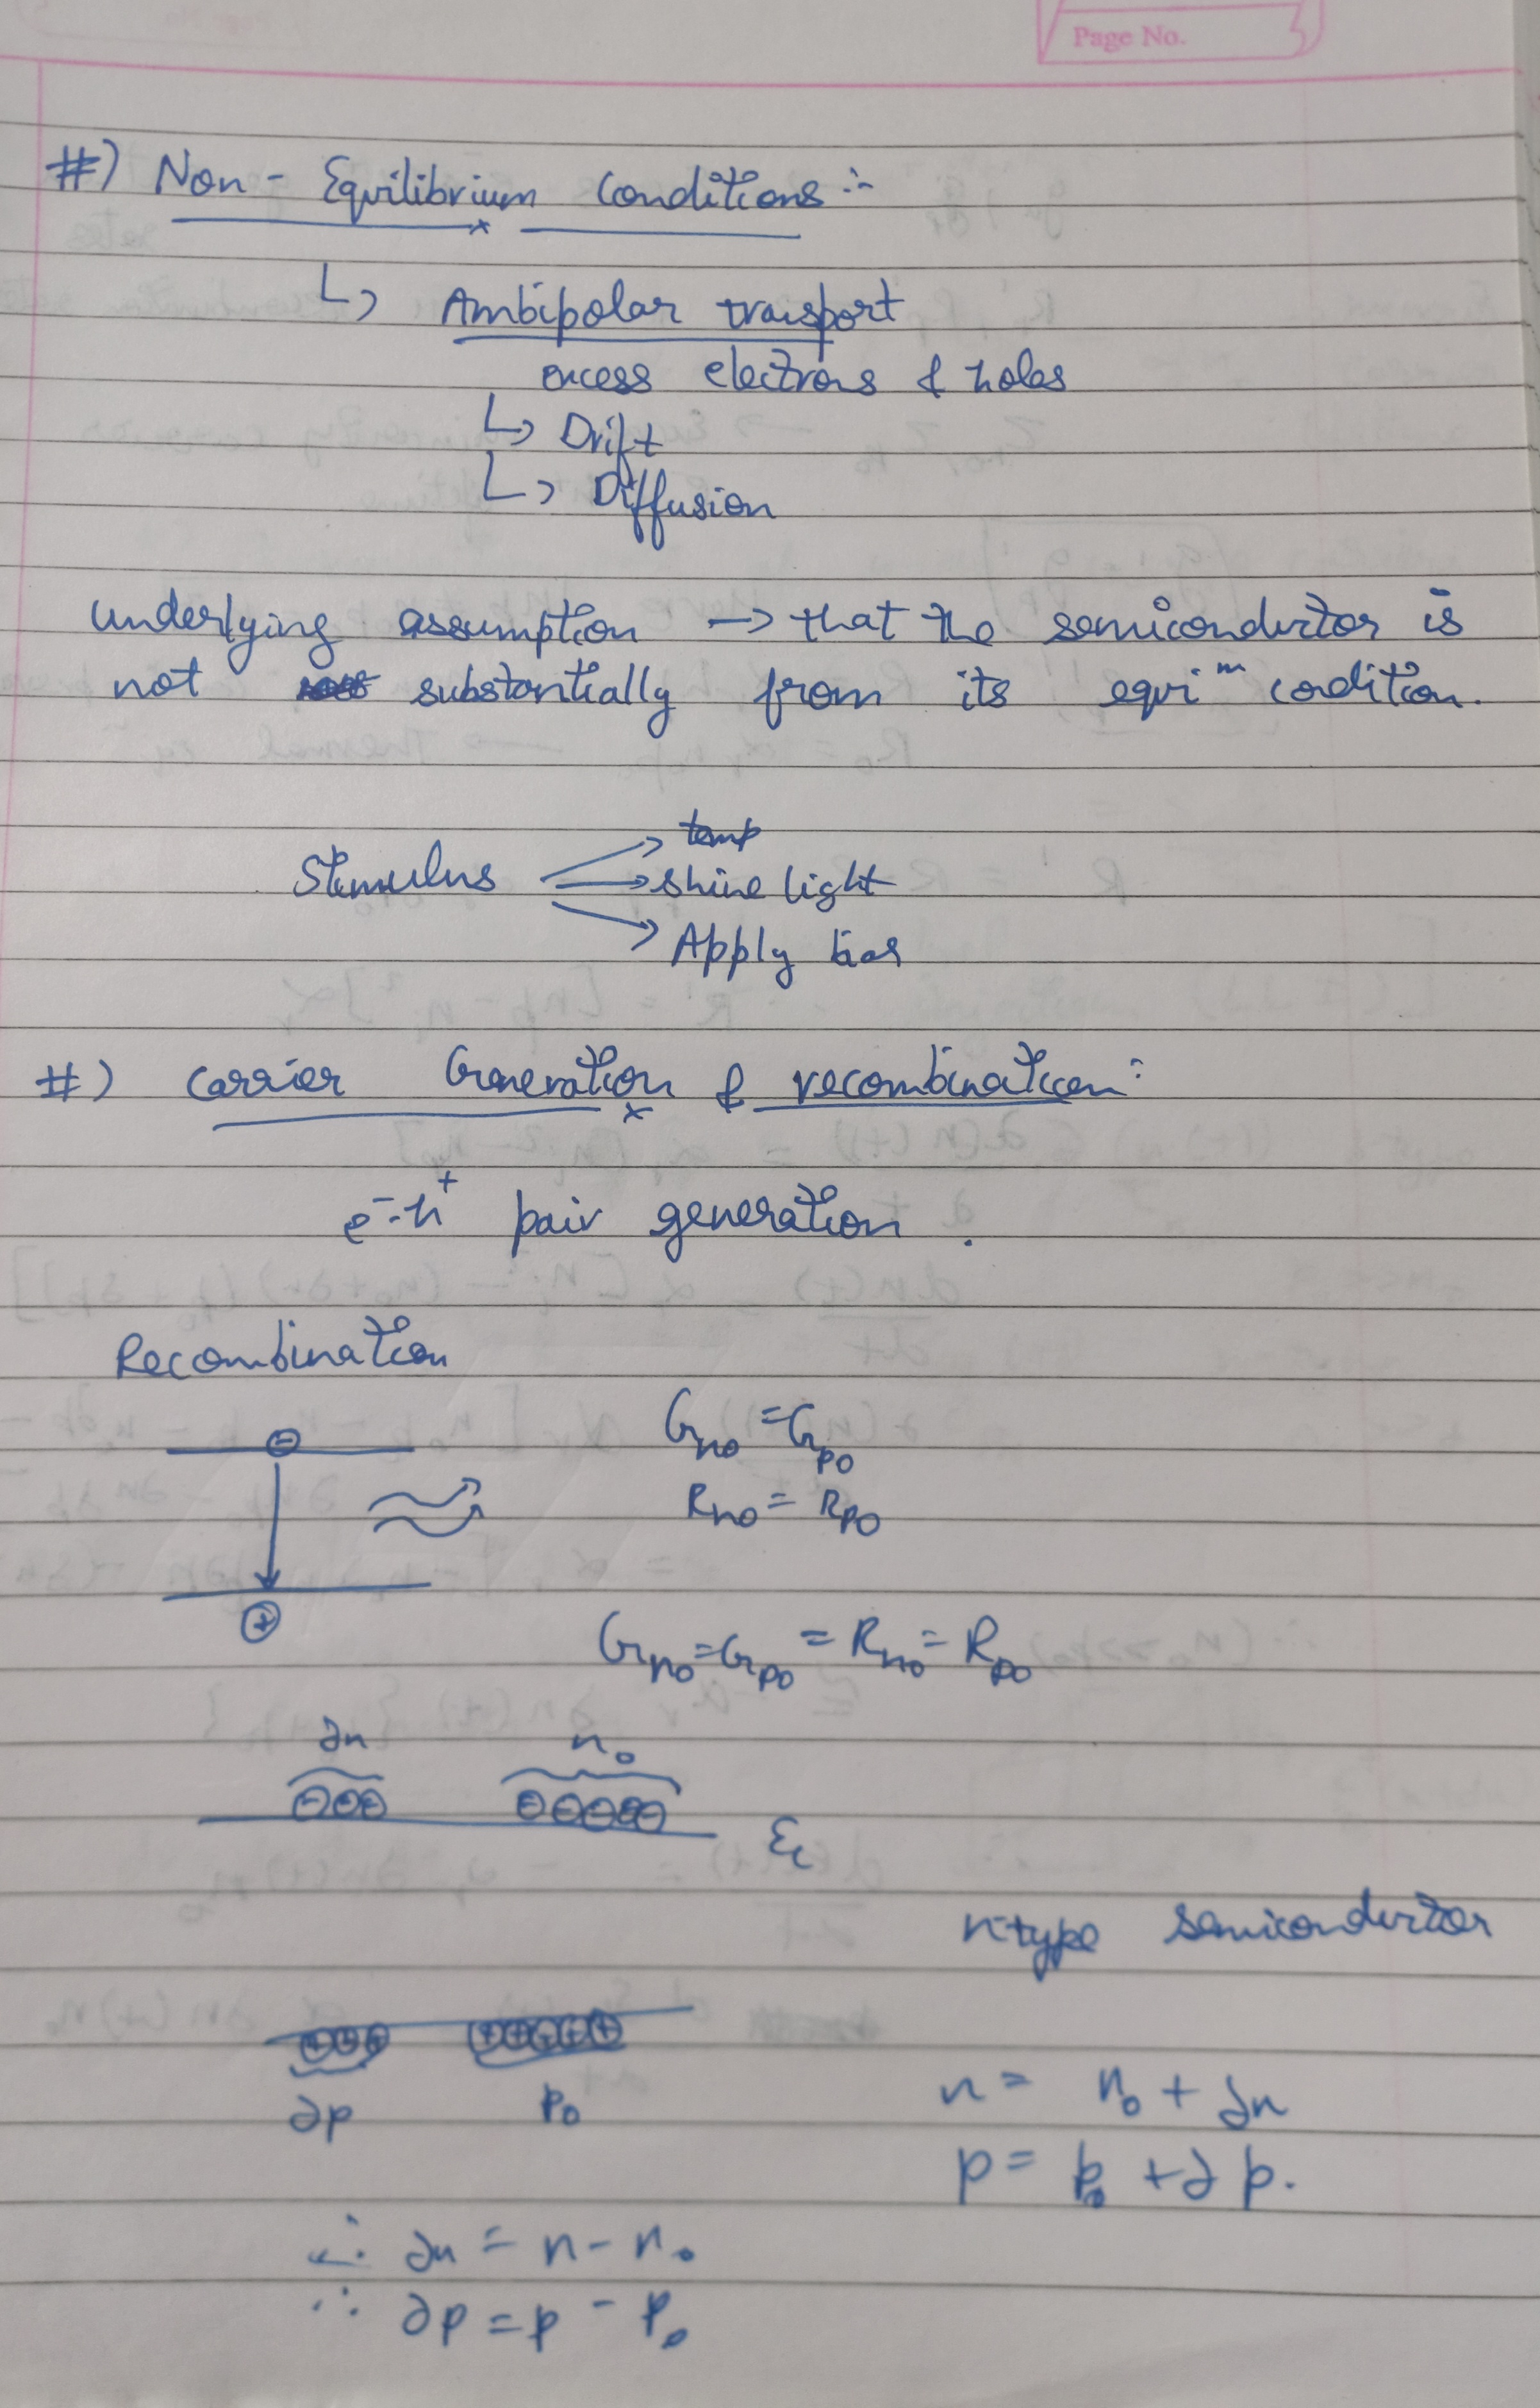 Page No.
#) Non-Equilibrium Conditions :-
↳ Ambipolar transport
excess electrons & holes
↳ Drift
↳ Diffusion
Underlying assumption → that the semiconductor is
not substantially from its equi^m condition.
Stimulus → temp
→ shine light
→ Apply bias
#) Carrier Generation & recombination:
e⁻-h⁺ pair generation.
Recombination
G_no = G_po
R_no = R_po
G_no = G_po = R_no = R_po
∂n n₀
E_c
n-type semiconductor
∂p p₀
n = n₀ + ∂n
p = p₀ + ∂p.
∴ ∂n = n - n₀
∴ ∂p = p - p₀